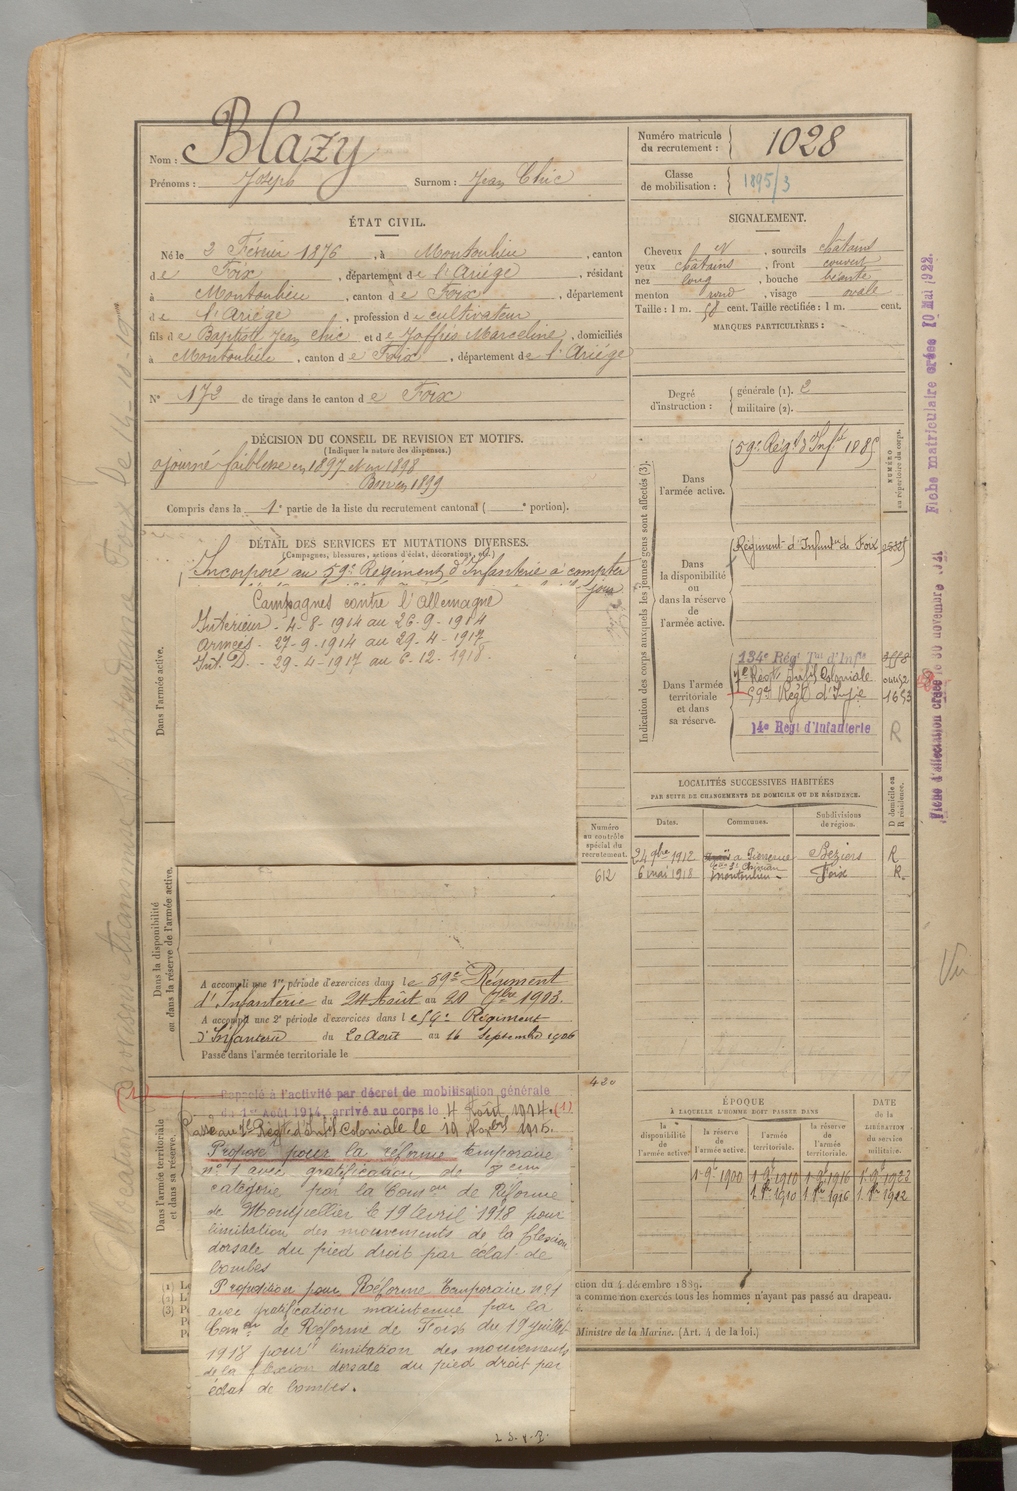 Nom : Blazy
Prénoms : Joseph Surnom : Jean Chic
Numéro matricule du recrutement : 1028
Classe de mobilisation : 1895/3
ÉTAT CIVIL.
Né le 2 Février 1876, à Montoulieu, canton
de Foix, département de l'Ariége, résidant
à Montoulieu, canton de Foix, département
de l'Ariége, profession de cultivateur
fils de Baptiste Jean Chic et de Joffrès Marceline, domiciliés
à Montoulieu, canton de Foix, département de l'Ariége
N° 172 de tirage dans le canton de Foix
SIGNALEMENT.
Cheveux N, sourcils châtains
yeux châtains, front couvert
nez long, bouche béante
menton rond, visage ovale
Taille : 1 m. 58 cent. Taille rectifiée : 1 m. cent.
MARQUES PARTICULIÈRES :
Degré d'instruction : générale (1). 2
militaire (2).
DÉCISION DU CONSEIL DE REVISION ET MOTIFS.
(Indiquer la nature des dispenses.)
ajourné faiblesse en 1897 et en 1898
Bon en 1899
Compris dans la 1e partie de la liste du recrutement cantonal ( e portion).
DÉTAIL DES SERVICES ET MUTATIONS DIVERSES.
(Campagnes, blessures, actions d'éclat, décorations, etc.)
Incorporé au 59e Régiment d'Infanterie à compter
Campagnes contre l'Allemagne
Intérieur - 4-8-1914 au 26-9-1914
Armées - 27-9-1914 au 29-4-1917
Int. D. - 29-4-1917 au 6-12-1918.
Dans l'armée active.
Indication des corps auxquels les jeunes gens sont affectés (3).
NUMÉRO au répertoire du corps.
Dans l'armée active.
59e Régt d'Inf
Dans la disponibilité ou dans la réserve de l'armée active.
Régiment d'Infanie de Foix
Dans l'armée territoriale et dans sa réserve.
134e Régt Tal d'Infie
Régt Inf Coloniale
59e Régt d'Infie 1653
14e Régt d'Infanterie R
Fiche matriculaire créée 10 Mai 1922.
Fiche d'affectation créée
LOCALITÉS SUCCESSIVES HABITÉES
PAR SUITE DE CHANGEMENTS DE DOMICILE OU DE RÉSIDENCE.
Dates. Communes. Subdivisions de région. D domicile ou R résidence.
24 9bre 1912 Béziers R
6 mai 1918 Montoulieu - Foix R.
Numéro au contrôle spécial du recrutement.
612
Dans la disponibilité ou dans la réserve de l'armée active.
A accompli une 1re période d'exercices dans le 59e Régiment
d'Infanterie du 24 Août au 20 7bre 1903.
A accompli une 2e période d'exercices dans le 59e Régiment
d'Infanterie du 20 Août au 16 Septembre 1906
Passé dans l'armée territoriale le
420
Vu
Dans l'armée territoriale et dans sa réserve.
Rappelé à l'activité par décret de mobilisation générale
du 1er Août 1914, arrivé au corps le 4 Août 1914. (1)
Régt d'Inf Coloniale le 19
Proposé pour la réforme temporaire
n° 1 avec gratification de
catégorie par la Comon de Réforme
de Montpellier le 19 avril 1918 pour
limitation des mouvements de la flexion
dorsale du pied droit par éclat de
bombes
Proposition pour Réforme Temporaire n° 1
avec gratification maintenue par la
Comon de Réforme de Foix du 19 juillet
1918 pour limitation des mouvements
de la flexion dorsale du pied droit par
éclat de bombes.
ÉPOQUE
À LAQUELLE L'HOMME DOIT PASSER DANS
la disponibilité de l'armée active. la réserve de l'armée active. l'armée territoriale. la réserve de l'armée territoriale.
DATE de la LIBÉRATION du service militaire.
ction du 4 décembre 1889.
comme non exercés tous les hommes n'ayant pas passé au drapeau.
Ministre de la Marine. (Art. 4 de la loi.)